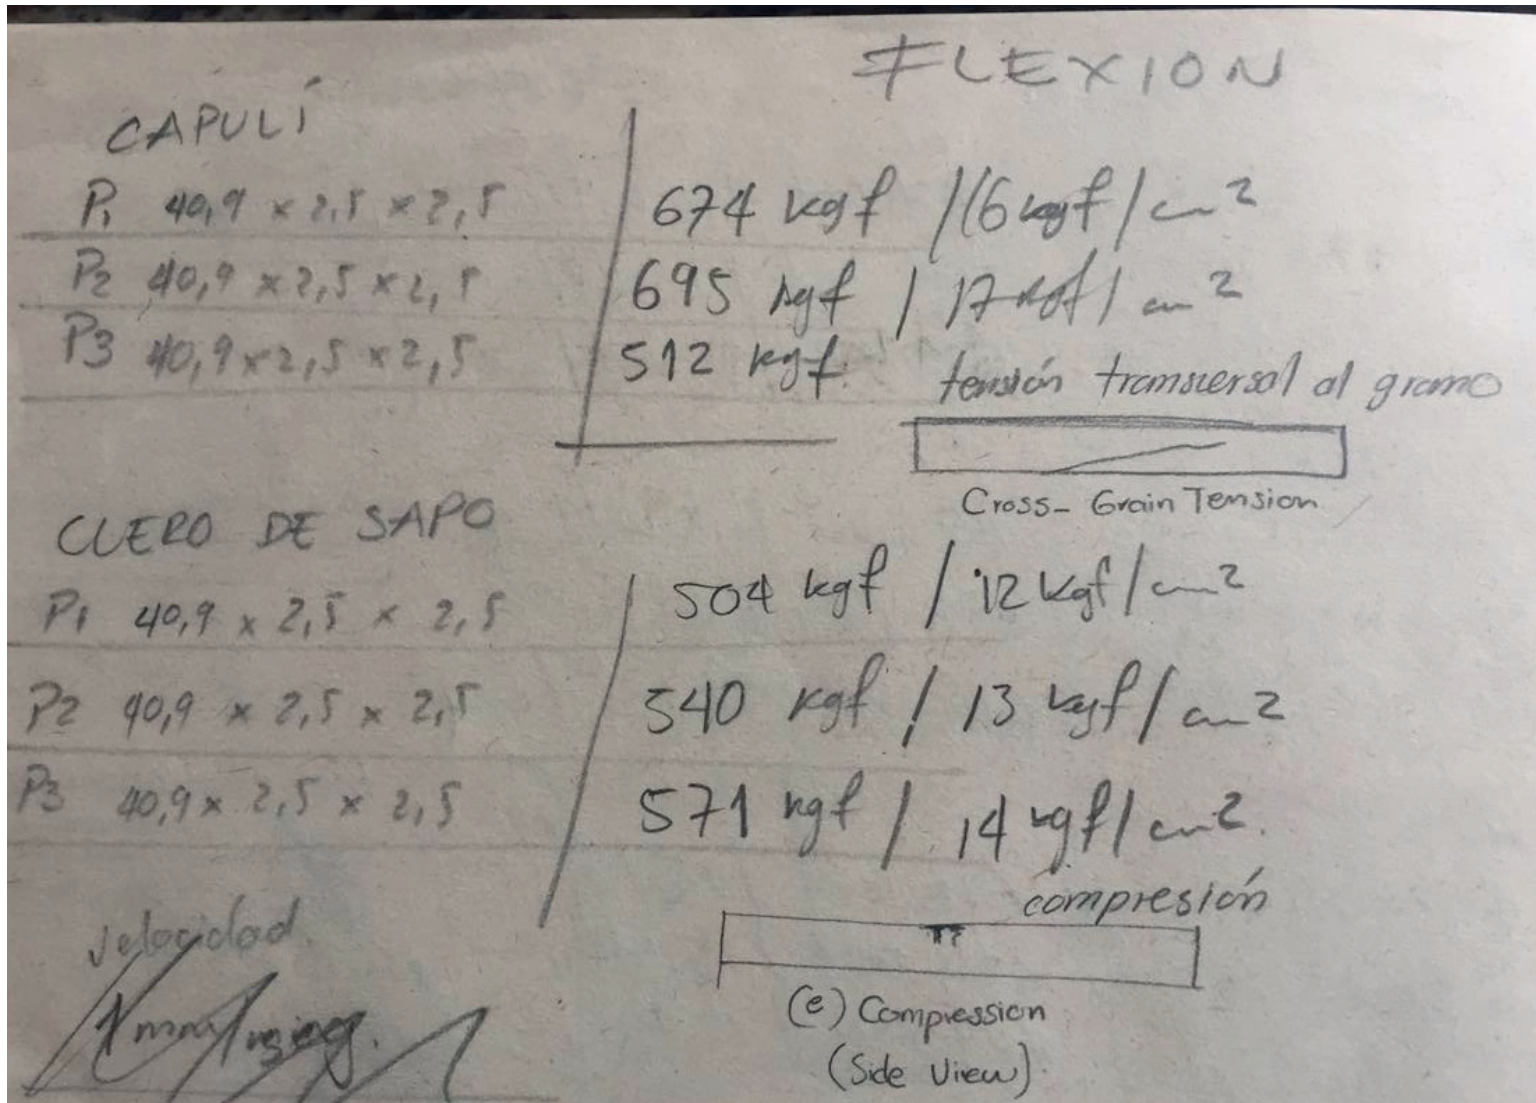 FLEXION
CAPULÍ
P1 40,9 x 2,5 x 2,5 674 kgf / 16 kgf/cm2
P2 40,9 x 2,5 x 2,5 695 kgf / 17 kgf/cm2
P3 40,9 x 2,5 x 2,5 512 kgf.
tensión transversal al grano
Cross-Grain Tension
CUERO DE SAPO
P1 40,9 x 2,5 x 2,5 504 kgf / 12 kgf/cm2
P2 40,9 x 2,5 x 2,5 540 kgf / 13 kgf/cm2
P3 40,9 x 2,5 x 2,5 571 kgf / 14 kgf/cm2.
compresión
velocidad.
(e) Compression
(Side View)